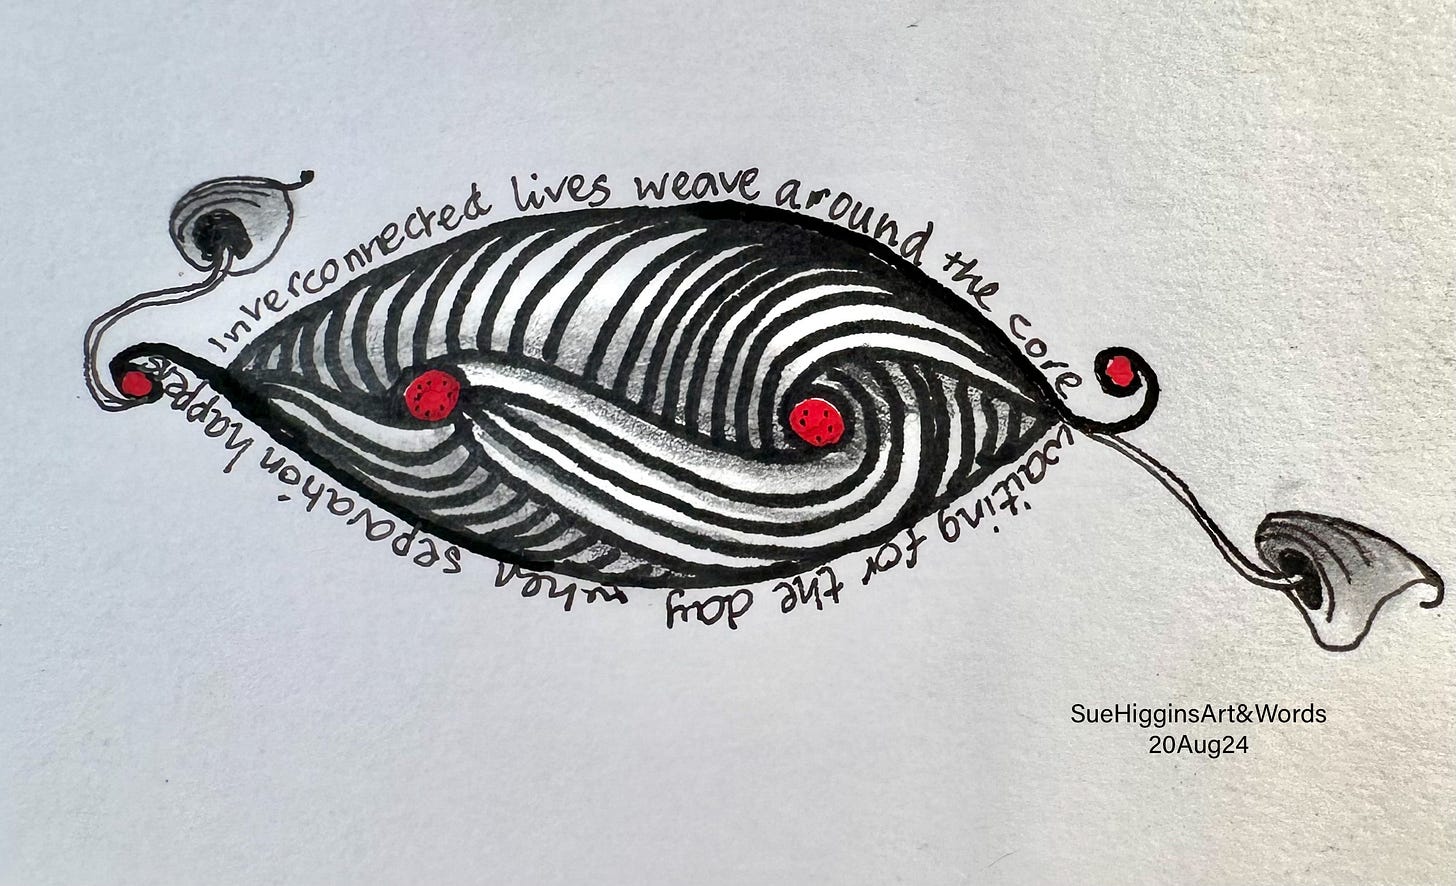 Interconnected lives weave around the core
waiting for the day when separation happens
SueHigginsArt&Words
20Aug24